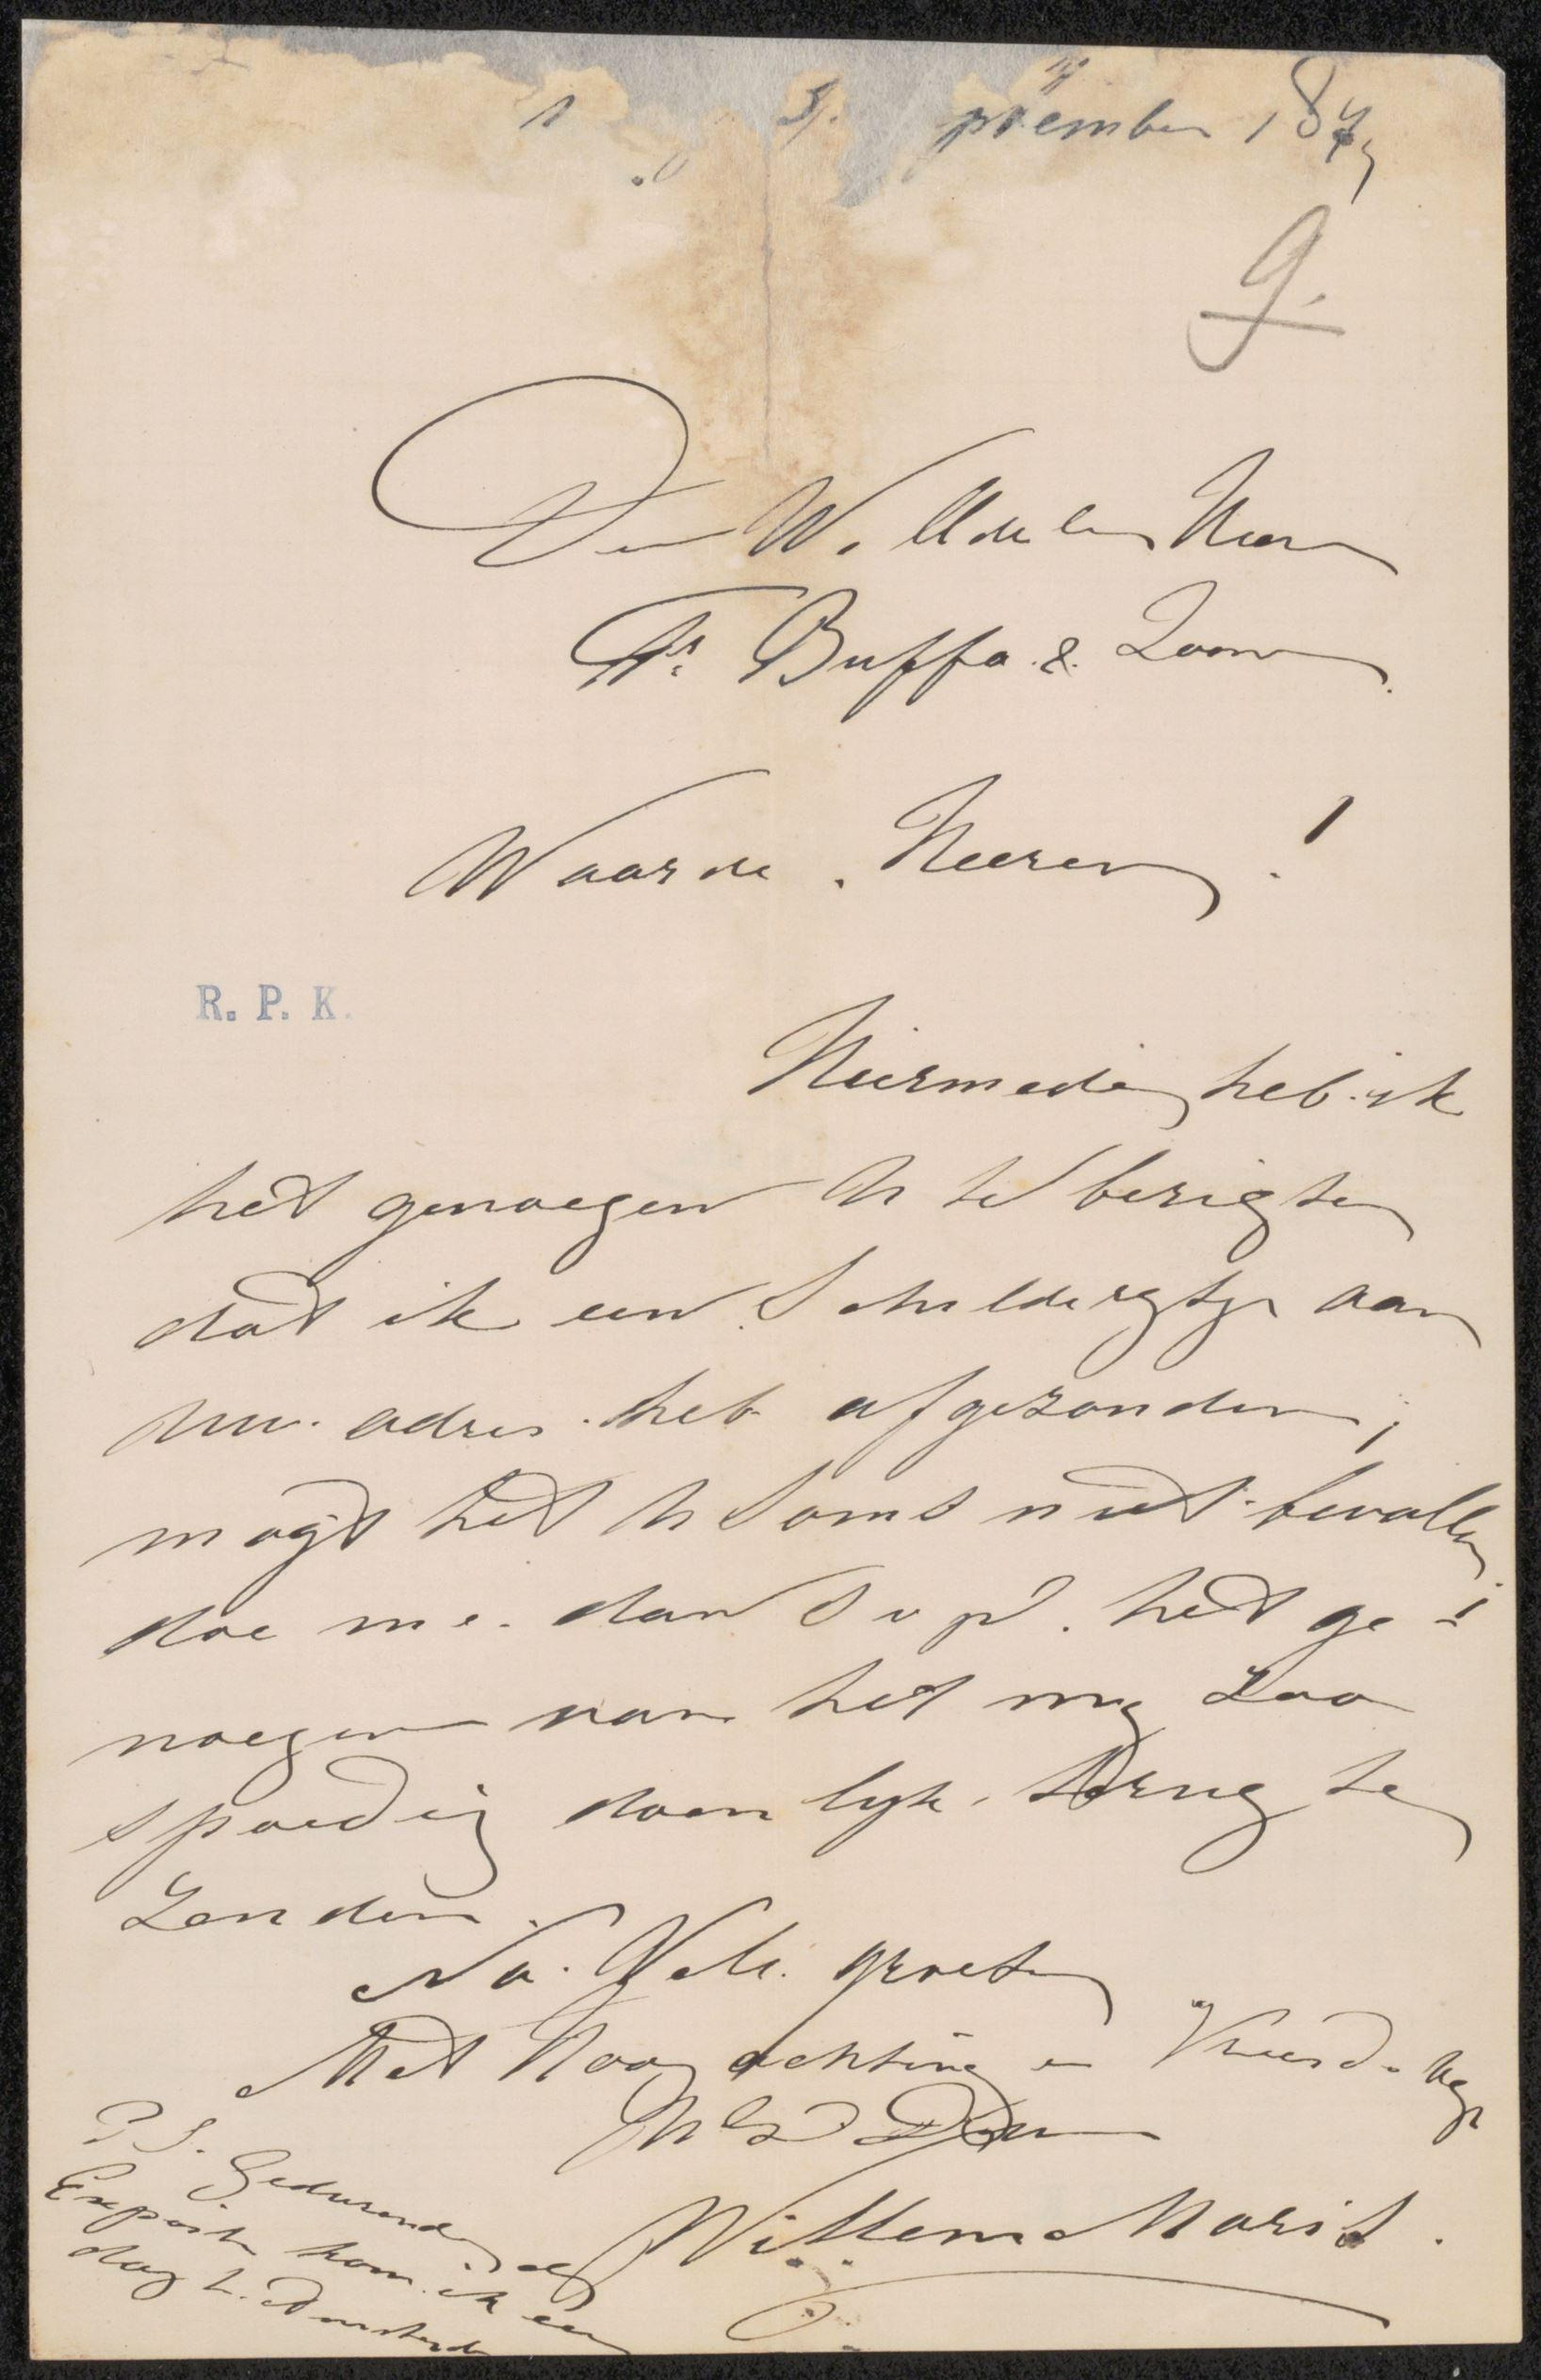 ptember 187
9.
Den W. Edelen Heeren
Fs. Buffa & Zoonen.
Waarde Heeren!
R. P. K.
Hiermede heb ik
het genoegen U te berigten
dat ik een Schilderytje aan
Uw adres heb afgezonden;
mogt het U Soms niet bevallen
doe me dan S v p. het ge-
noegen van het my Zoo
spoedig doenlyk terug te
Zenden.
Na. Vele groeten
Met Hoogachting en
UEd Dn
Willem Maris.
P. S. Gedurende de
Expositie kom ik een
dag t. Amsterdam